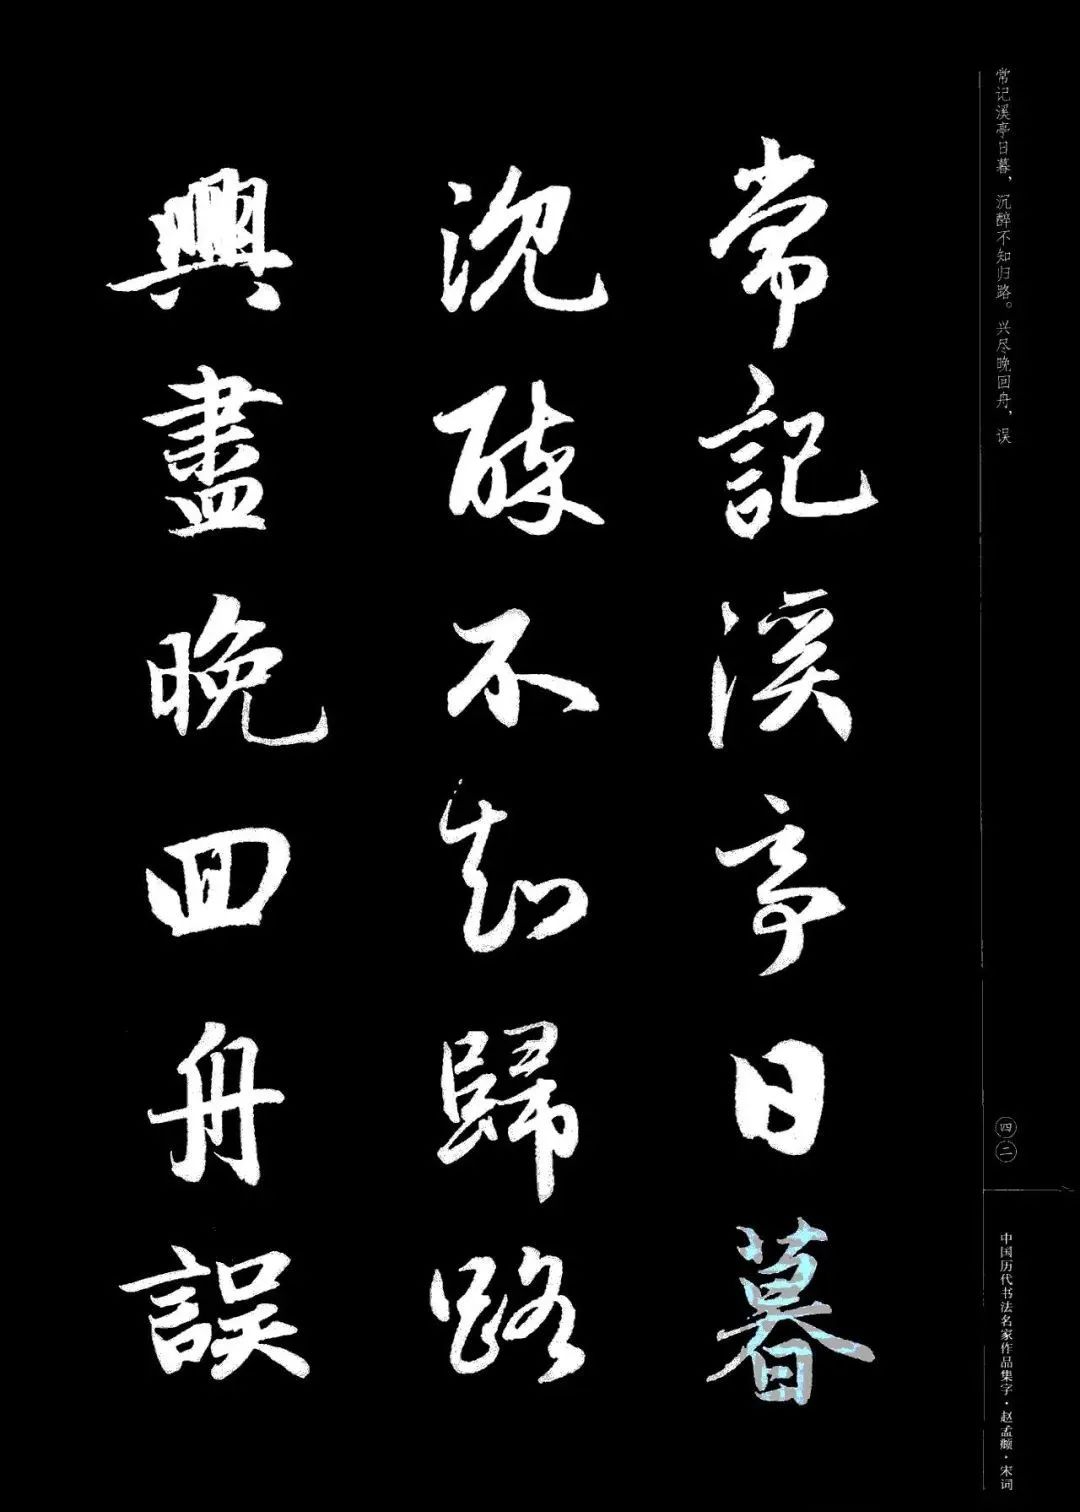 常记溪亭日暮，沉醉不知归路。兴尽晚回舟，误
常記溪亭日暮
沉醉不知歸路
興盡晚回舟誤
四二
中国历代书法名家作品集字·赵孟頫·宋词